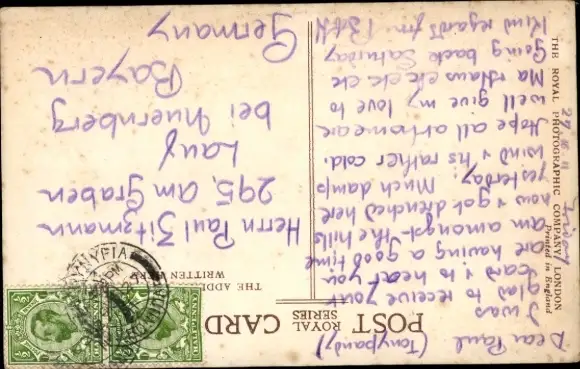 POST CARD
ROYAL
SERIES
THE ADDRESS
WRITTEN HERE
THE ROYAL PHOTOGRAPHIC COMPANY, LONDON
Printed in England
27.10.11
Friday
Dear Paul (Tonypandy)
I was
glad to receive your
card & to hear you
are having a good time
am amongst the hills
now & got drenched here
yesterday. Much damp
wind & his rather cold.
Hope all at home are
well give my love to
Ma & Klaus etc etc etc
Going back Saturday
Kind regards from
Herrn Paul Zitzmann
295, am Graben
Lauf
bei Nuernberg
Bayern
Germany